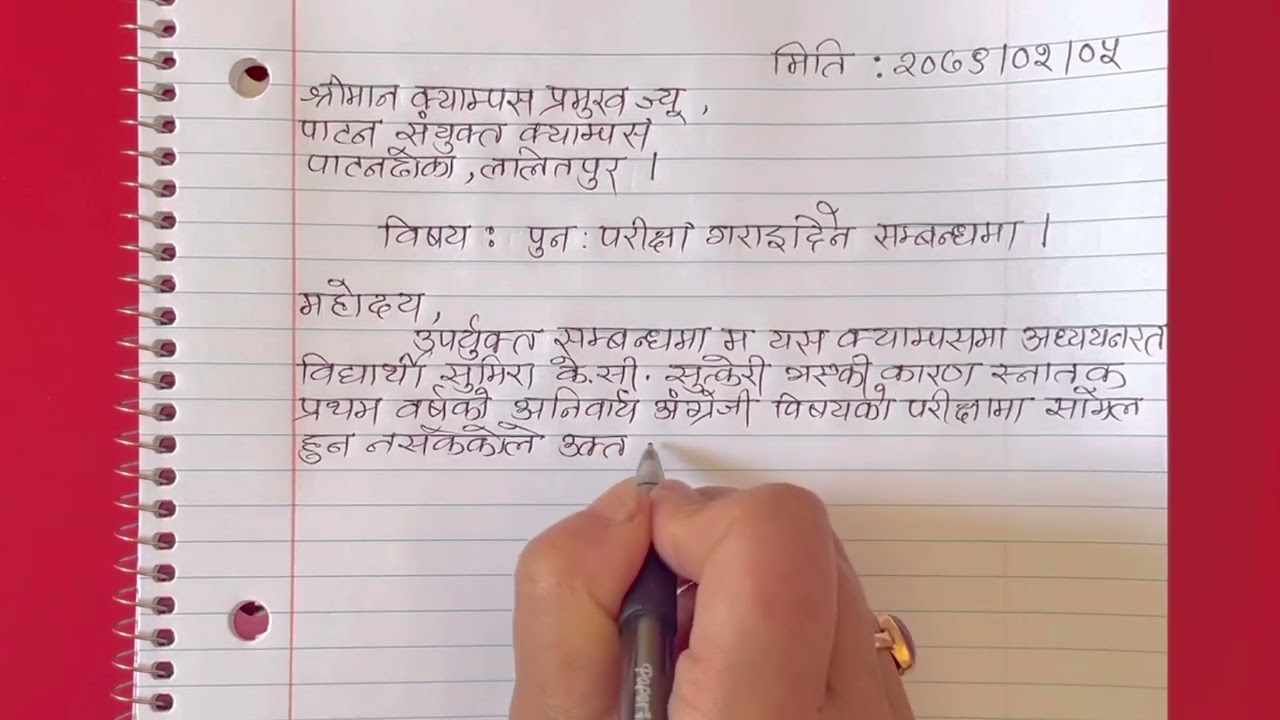 मिति : २०७९।०२।०५
श्रीमान क्याम्पस प्रमुख ज्यू ,
पाटन संयुक्त क्याम्पस
पाटनढोका , ललितपुर ।
विषय : पुन : परीक्षा गराइदिने सम्बन्धमा ।
महोदय ,
उपर्युक्त सम्बन्धमा म यस क्याम्पसमा अध्ययनरत
विद्यार्थी सुमिरा के.सी. सुत्केरी भएकी कारण स्नातक
प्रथम वर्षको अनिवार्य अंग्रेजी विषयको परीक्षामा सामेल
हुन नसकेकोले उक्त
Paper